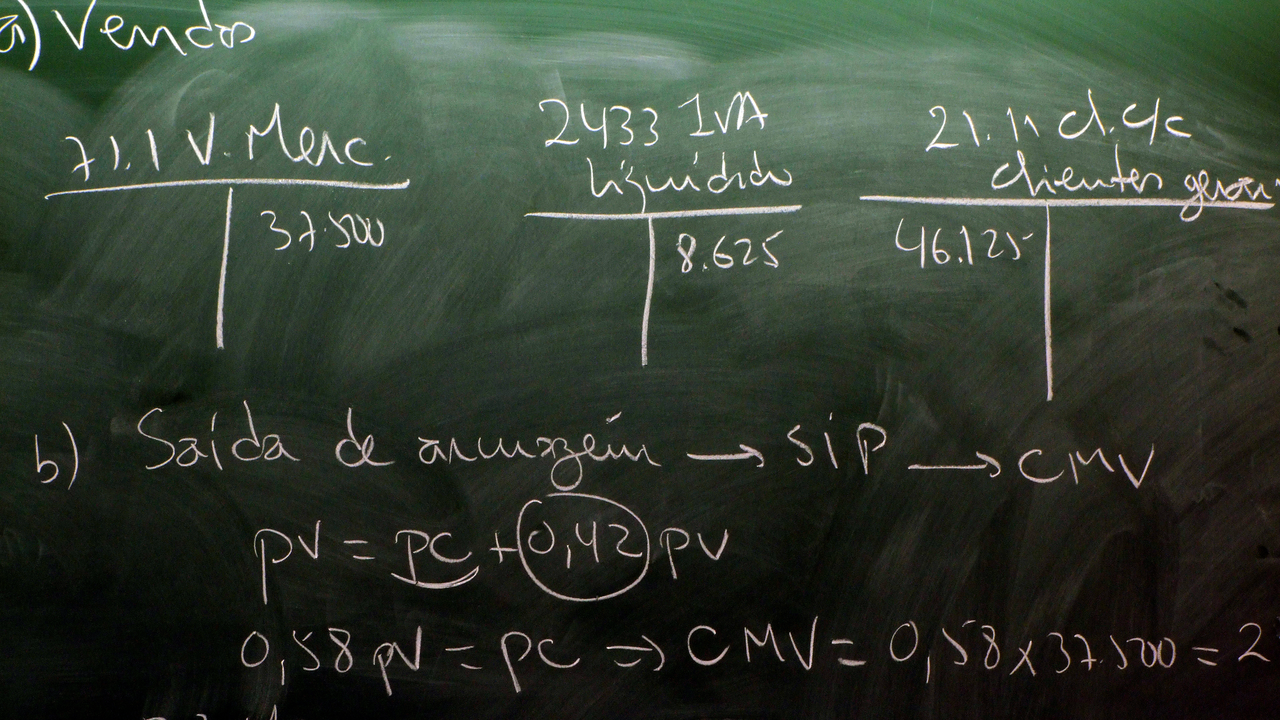 a) Vendas
71.1 V. Merc.
37.500
2433 IVA
liquidado
8.625
21.11 cl. c/c
clientes gerais
46.125
b) Saída de armazém → SIP → CMV
pv = pc + 0,42 pv
0,58 pv = pc ⇒ CMV = 0,58 x 37.500 = 2